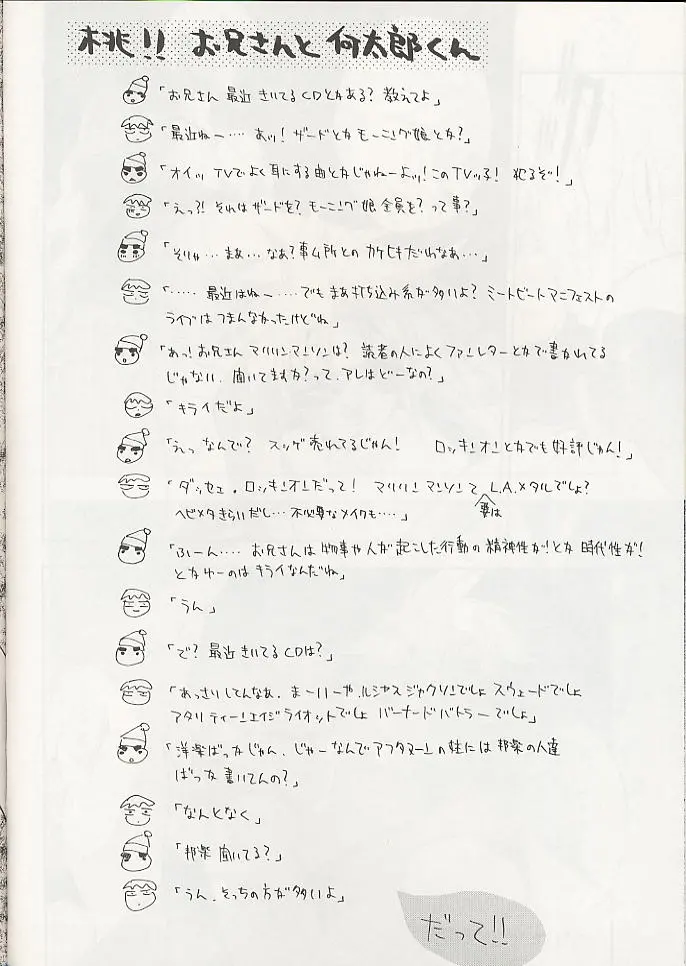 桃!! お兄さんと何太郎くん
「お兄さん 最近 きいてるCDとかある? 教えてよ」
「最近ねー…… あッ! ザードとかモーニング娘とか?」
「オイッ TVでよく耳にする曲とかじゃねーよッ! このTVッ子! 犯るぞ!」
「えっ?! それはザードを? モーニング娘全員を? って事?」
「そりゃ… まあ… なあ? 事ム所とのカケヒキだわなあ…」
「…… 最近はねー ……でもまあ打ち込み系が多いよ? ミートビートマニフェストの
ライブはつまんなかったけどね」
「あっ! お兄さん マリリン・マンソンは? 読者の人によくファンレターとかで書かれてる
じゃない、聞いてますか? って、アレはどーなの?」
「キライだよ」
「えっ なんで? スッゲ売れてるじゃん! ロッキンオンとかでも好評じゃん!」
「ダッセェ。ロッキンオンだって! マリリンマンソンて要はL.A.メタルでしょ?
ヘビメタきらいだし… 不必要なメイクも……」
「ふーん…… お兄さんは物事や人が起こした行動の精神性が! とか 時代性が!
とかゆーのはキライなんだね」
「うん」
「で? 最近きいてるCDは?」
「あっさりしてんなあ、まーいーや、ルシャスジャクソンでしょ スウェードでしょ
アタリティーンエイジライオットでしょ バーナードバトラーでしょ」
「洋楽ばっかじゃん、じゃーなんでアフタヌーンの柱には邦楽の人達
ばっか書いてんの?」
「なんとなく」
「邦楽 聞いてる?」
「うん、そっちの方が多いよ」
だって!!